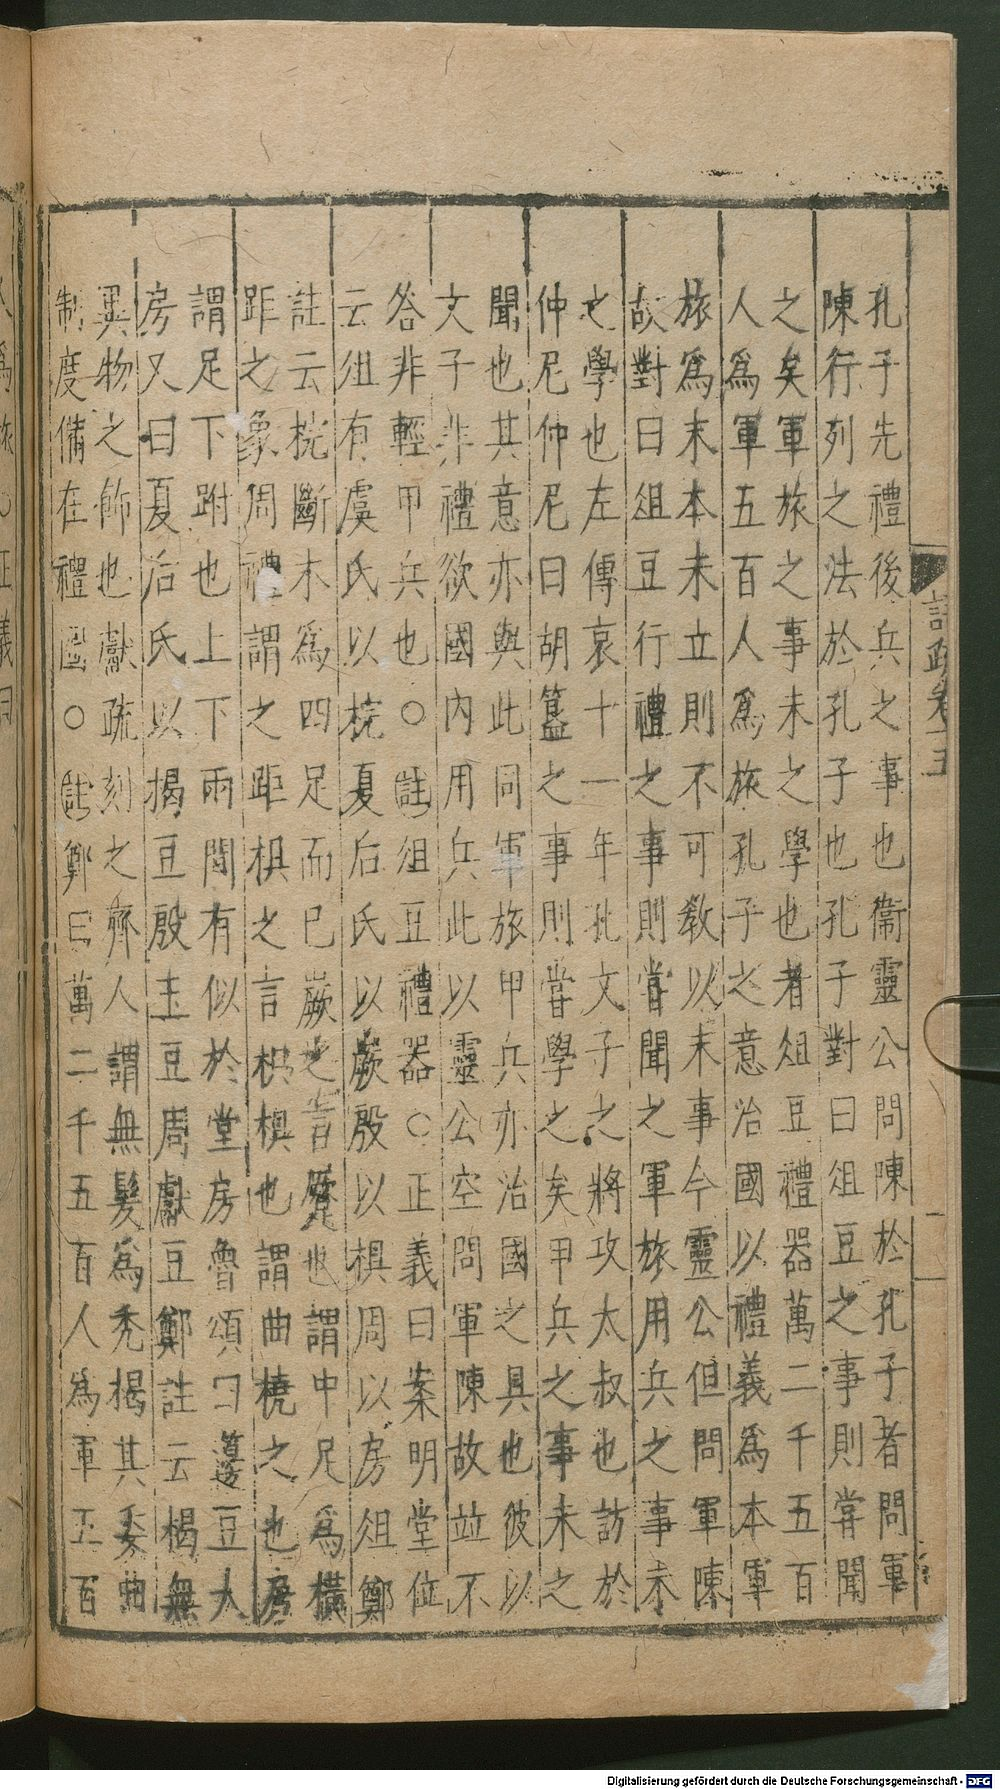 孔子先禮後兵之事也衞靈公問陳於孔子者問軍
陳行列之法於孔子也孔子對曰俎豆之事則甞聞
之矣軍旅之事未之學也者俎豆禮器萬二千五百
人爲軍五百人爲旅孔子之意治國以禮義爲本軍
旅爲末本未立則不可教以末事今靈公但問軍陳
故對曰俎豆行禮之事則甞聞之軍旅用兵之事未
之學也左傳哀十一年孔文子之將攻太叔也訪於
仲尼仲尼曰胡簋之事則甞學之矣甲兵之事未之
聞也其意亦與此同軍旅甲兵亦治國之具也彼以
文子非禮欲國內用兵此以靈公空問軍陳故竝不
答非輕甲兵也○註俎豆禮器○正義曰案明堂位
云俎有虞氏以梡夏后氏以嶡殷以椇周以房俎鄭
註云梡斷木爲四足而已嶡之言蹷也謂中足爲橫
距之象周禮謂之距椇之言枳椇也謂曲橈之也房
謂足下跗也上下兩閒有似於堂房魯頌曰籩豆大
房又曰夏后氏以楬豆殷玉豆周獻豆鄭註云楬無
異物之飾也獻疏刻之齊人謂無髮爲禿楬其委曲
制度備在禮圖○註鄭曰萬二千五百人爲軍五百
註疏卷十五